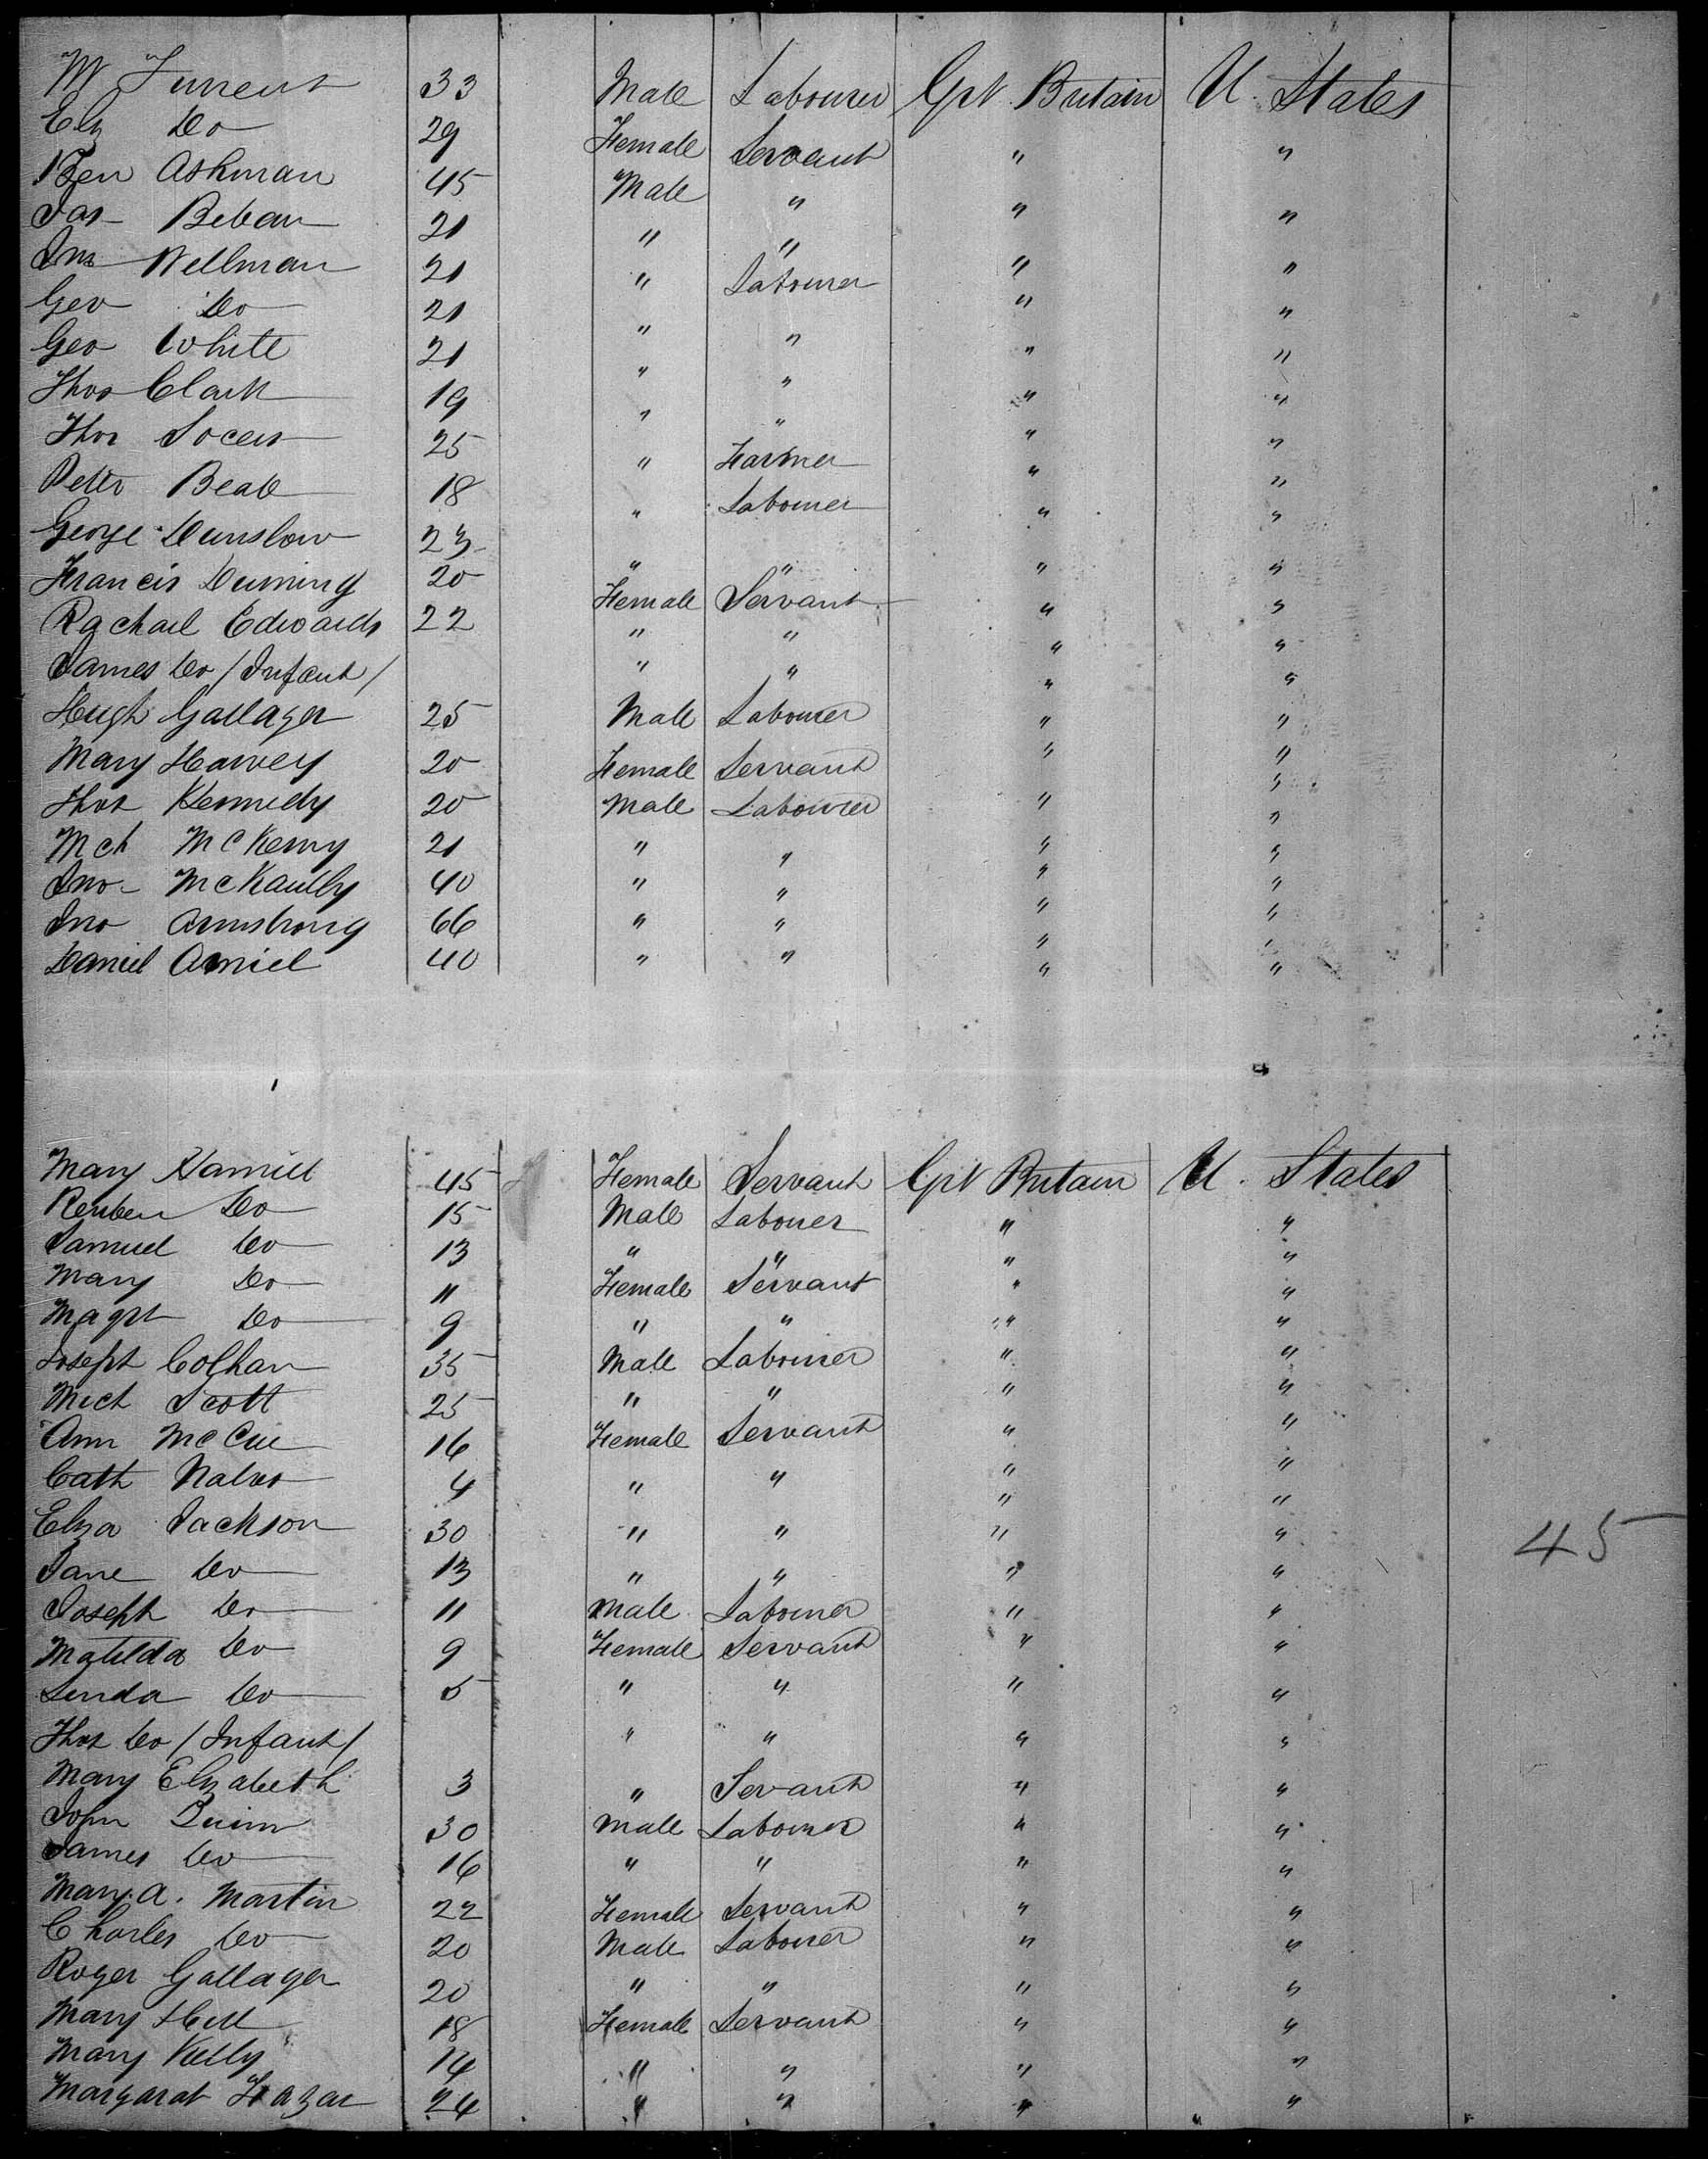 W Turrent 33 Male Labourer Grt Britain U. States
Eliz Do 29 Female Servant " "
Ben Ashman 45 Male " " "
Jas Beban 21 " " " "
Jno Wellman 21 " Labourer " "
Geo Do 21 " " " "
Geo White 21 " " " "
Thos Clark 19 " " " "
Thos 25 " Farmer " "
Peter Beale 18 " Labourer " "
George Dunslow 23 " " " "
Francis Duming 20 Female Servant " "
Rachael Edwards 22 " " " "
James Do / Infant / " " " "
Hugh Gallager 25 Male Labourer " "
Mary Harvey 20 Female Servant " "
Thos Kennedy 20 Male Labourer " "
Mch McKenny 21 " " " "
Jno McKaully 40 " " " "
Jno Armstrong 66 " " " "
Daniel Amiel 40 " " " "
Mary Hamill 45 Female Servant Grt Britain U. States
Reuben Do 15 Male Labourer " "
Samuel Do 13 " " " "
Mary Do 11 Female Servant " "
Magrt Do 9 " " " "
Joseph Colhan 35 Male Labourer " "
Mich Scott 25 " " " "
Ann McCue 16 Female Servant " "
Cath 4 " " " "
Eliza Jackson 30 " " " "
Jane Do 13 " " " "
Joseph Do 11 Male Labourer " "
Matilda Do 9 Female Servant " "
Linda Do 5 " " " "
Thos Do / Infant / " " " "
Mary Elizabeth 3 " Servant " "
John Quinn 30 Male Labourer " "
James Do 16 " " " "
Mary A. Martin 22 Female Servant " "
Charles Do 20 Male Labourer " "
Roger Gallager 20 " " " "
Mary Hill 18 Female Servant " "
Mary Kelly 14 " " " "
Margarat Hazar 24 " " " "
45